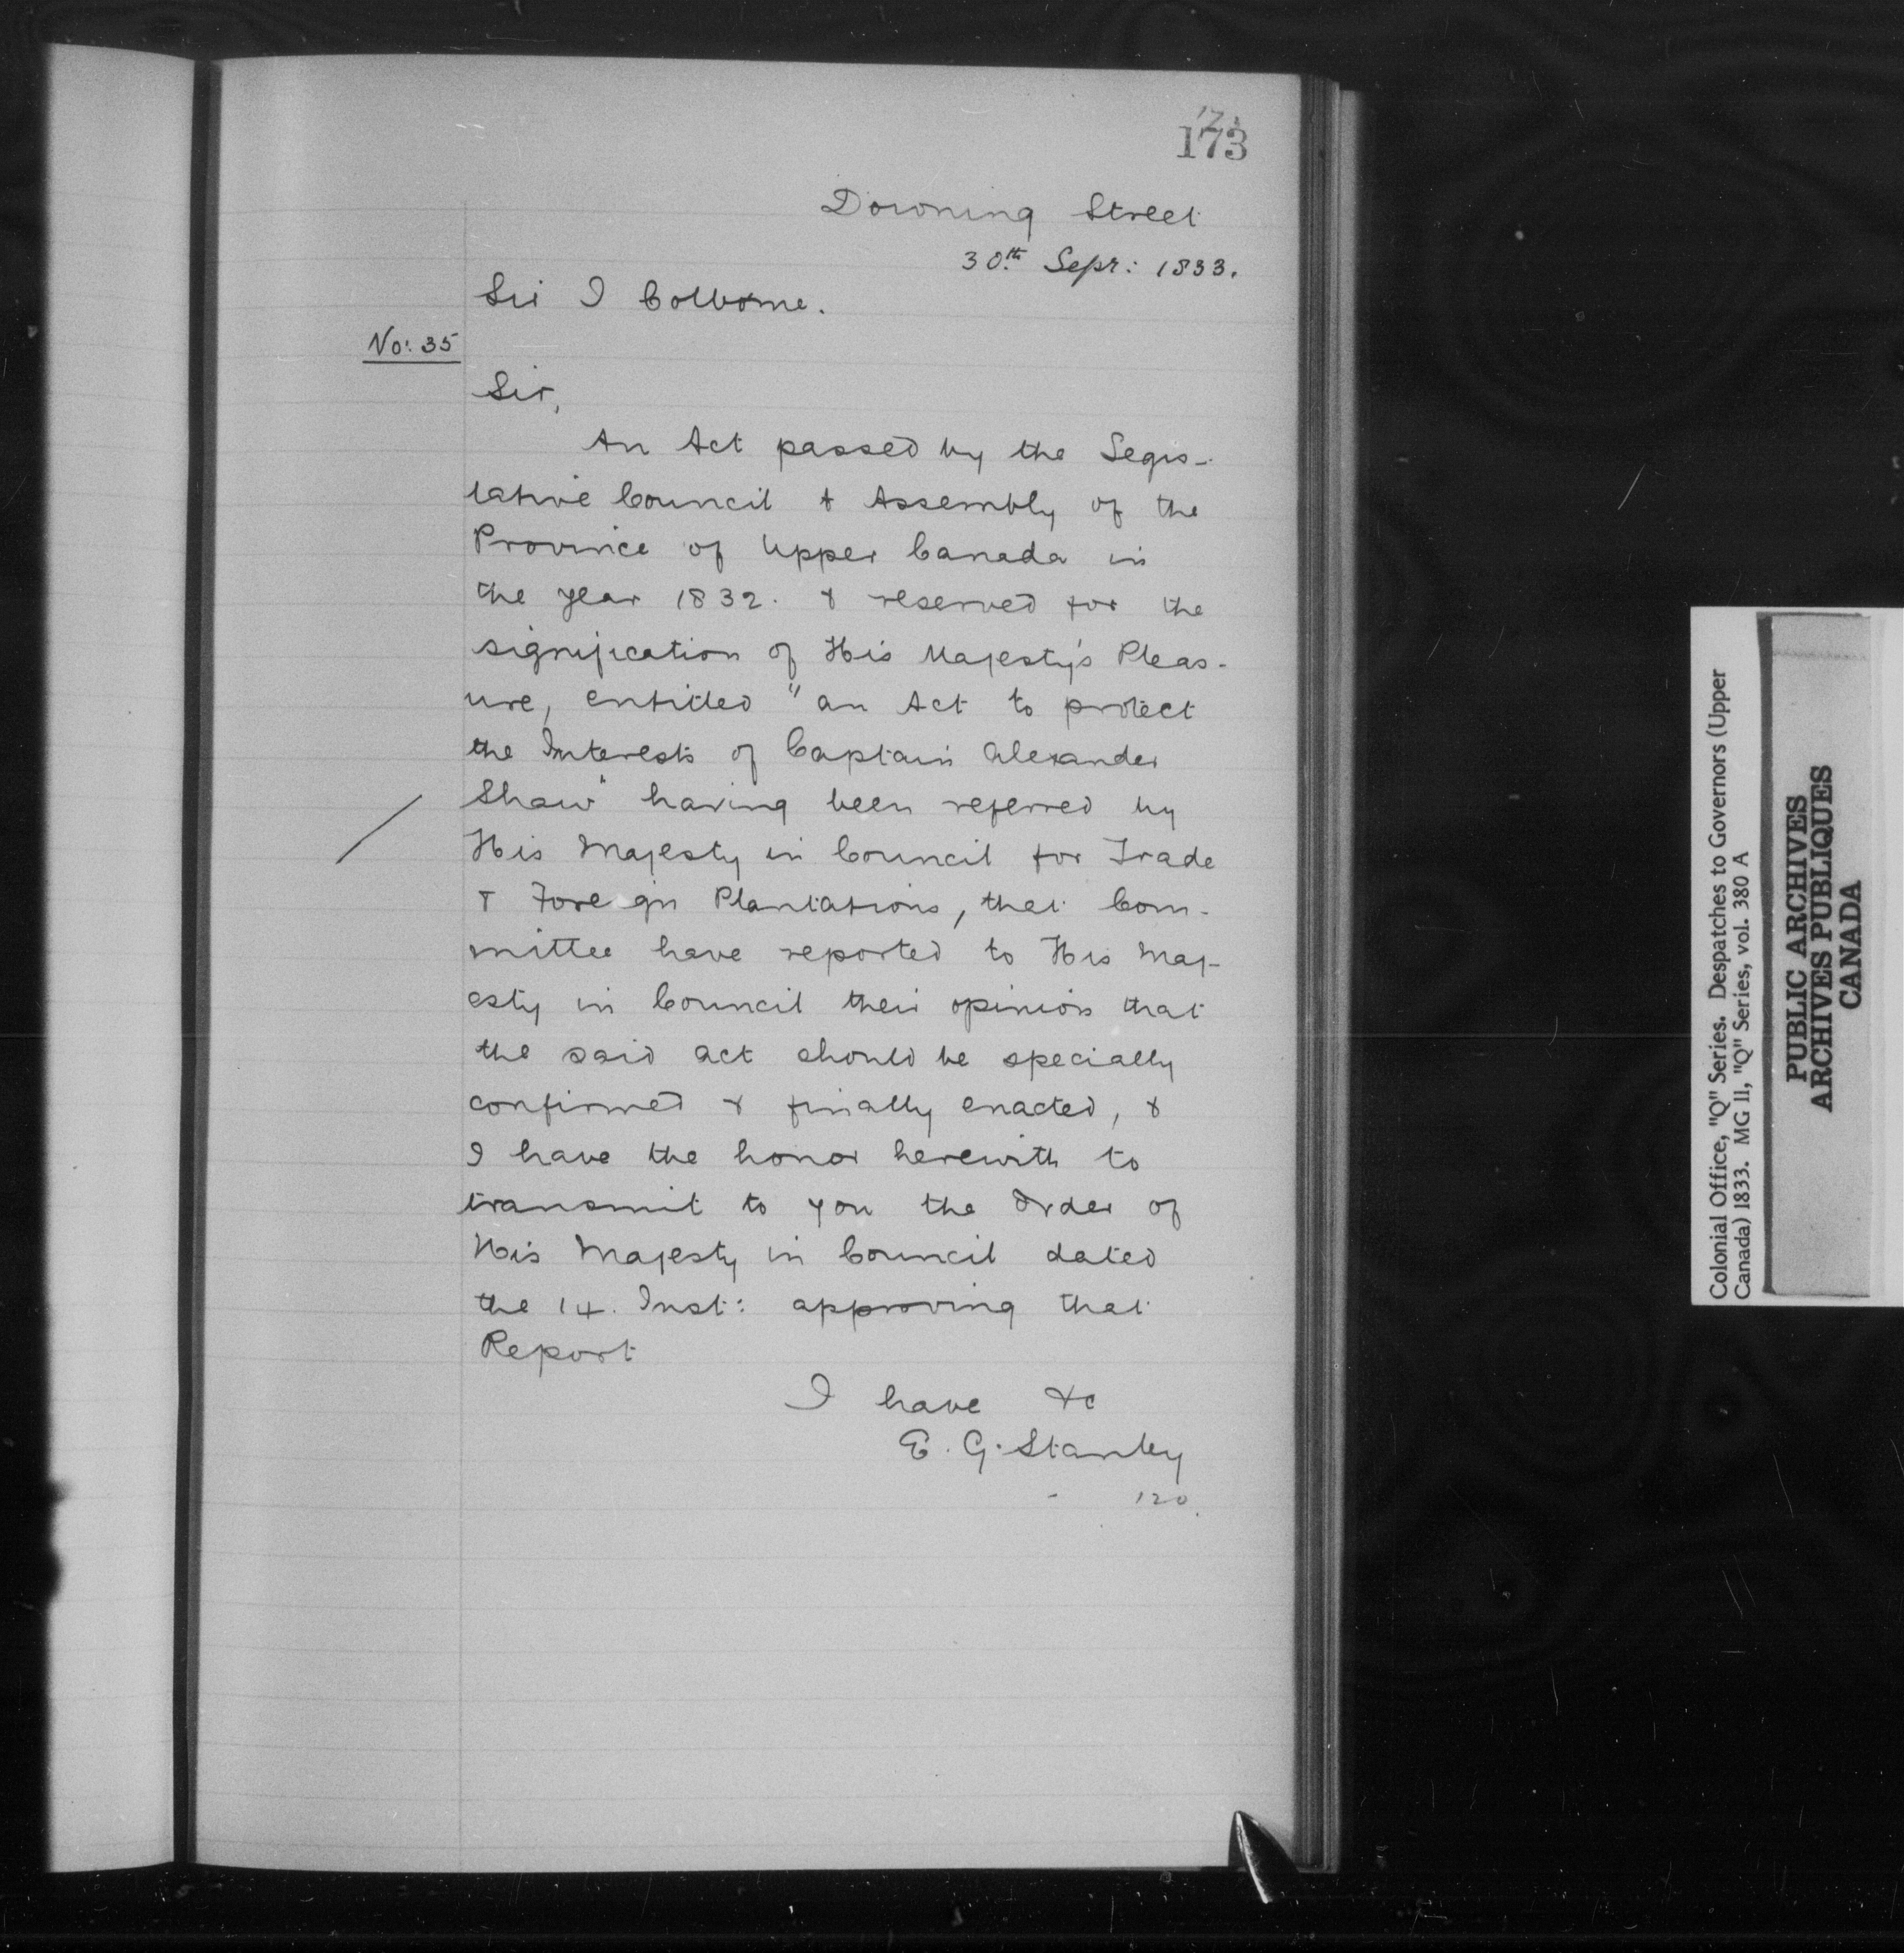 173
Downing Street
30th Sepr: 1833.
Sir J Colborne.
No: 35
Sir,
An Act passed by the Legis-
lative Council & Assembly of the
Province of Upper Canada in
the year 1832. & reserved for the
signification of His Majesty's Pleas-
ure, entitled "an Act to protect
the Interests of Captain Alexander
Shaw" having been referred by
His Majesty in Council for Trade
& Foreign Plantations, that Com-
mittee have reported to His Maj-
esty in Council their opinion that
the said act should be specially
confirmed & finally enacted, &
I have the honor herewith to
transmit to you the Order of
His Majesty in Council dated
the 14. Inst: approving that
Report
I have &c
E. G. Stanley
120.
Colonial Office, "Q" Series. Despatches to Governors (Upper
Canada) 1833. MG 11, "Q" Series, vol. 380 A
PUBLIC ARCHIVES
ARCHIVES PUBLIQUES
CANADA